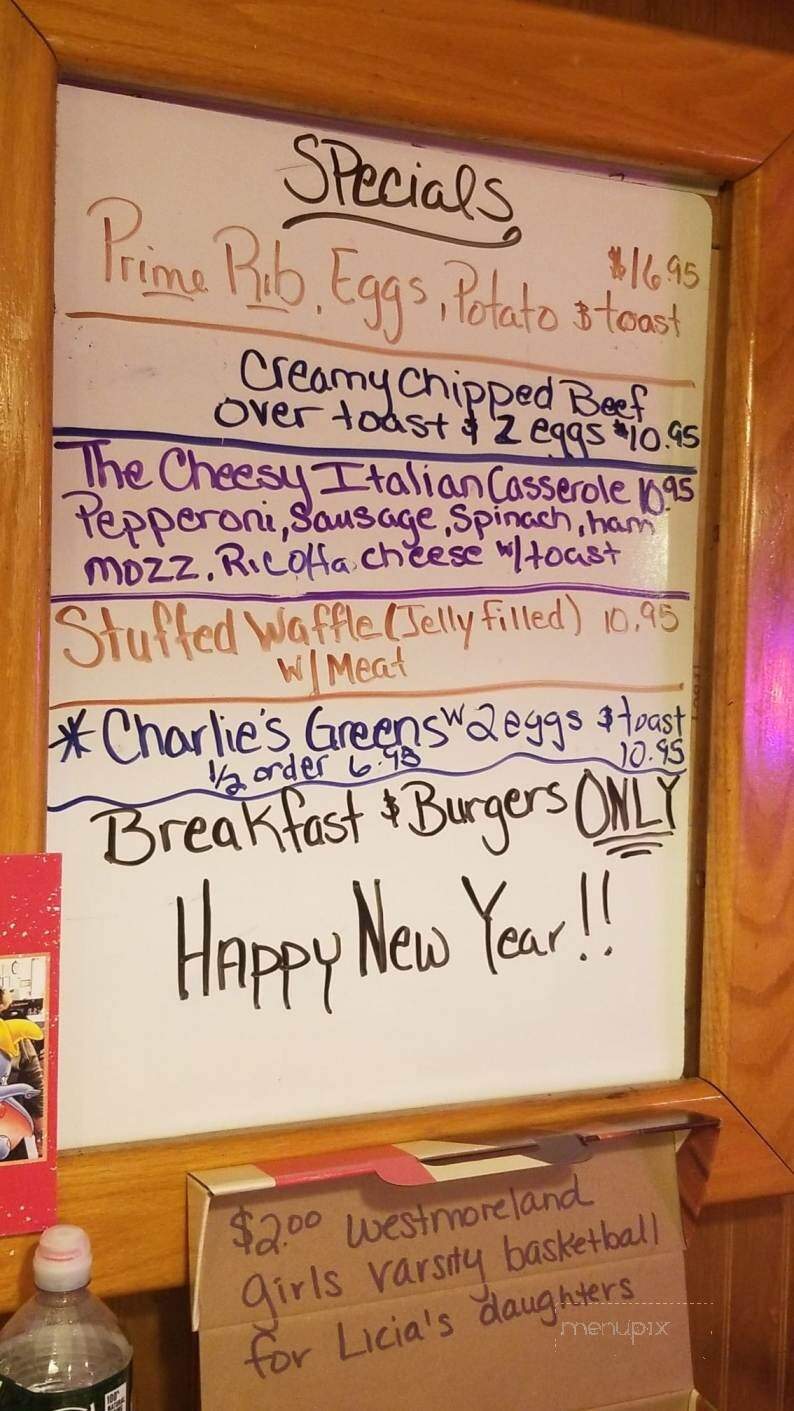 Specials
$16.95
Prime Rib, Eggs, Potato & toast
Creamy Chipped Beef
over toast & 2 eggs $10.95
The Cheesy Italian Casserole 10.95
Pepperoni, Sausage, Spinach, ham
mozz, Ricotta cheese w/toast
Stuffed Waffle (Jelly filled) 10.95
w/ Meat
* Charlie's Greens w 2 eggs & toast
1/2 order 6.95 10.95
Breakfast & Burgers ONLY
Happy New Year!!
$2.00 Westmoreland
girls varsity basketball
for Licia's daughters
menupix